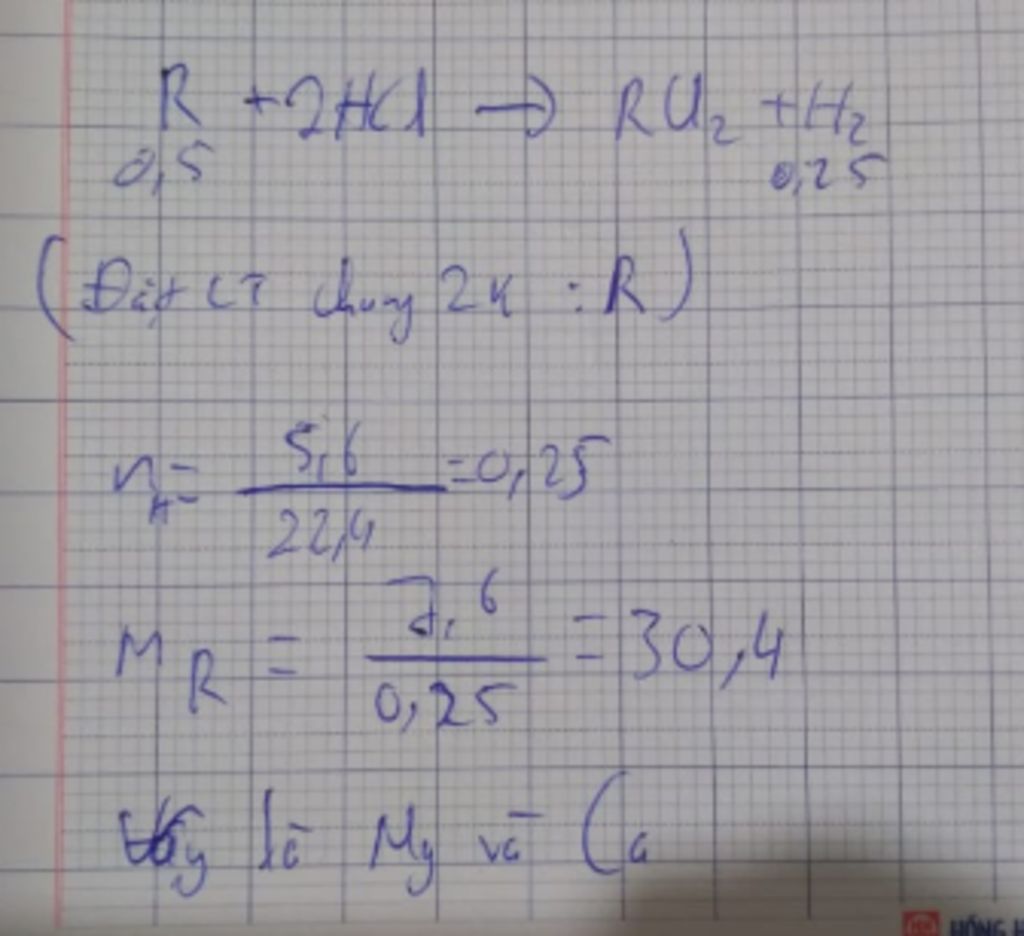 R + 2HCl → RCl₂ + H₂
0,5 0,25
(Đặt CT chung 2K : R)
n = 5,6 / 22,4 = 0,25
M R = 7,6 / 0,25 = 30,4
Vậy là Mg và Ca
HỒNG H